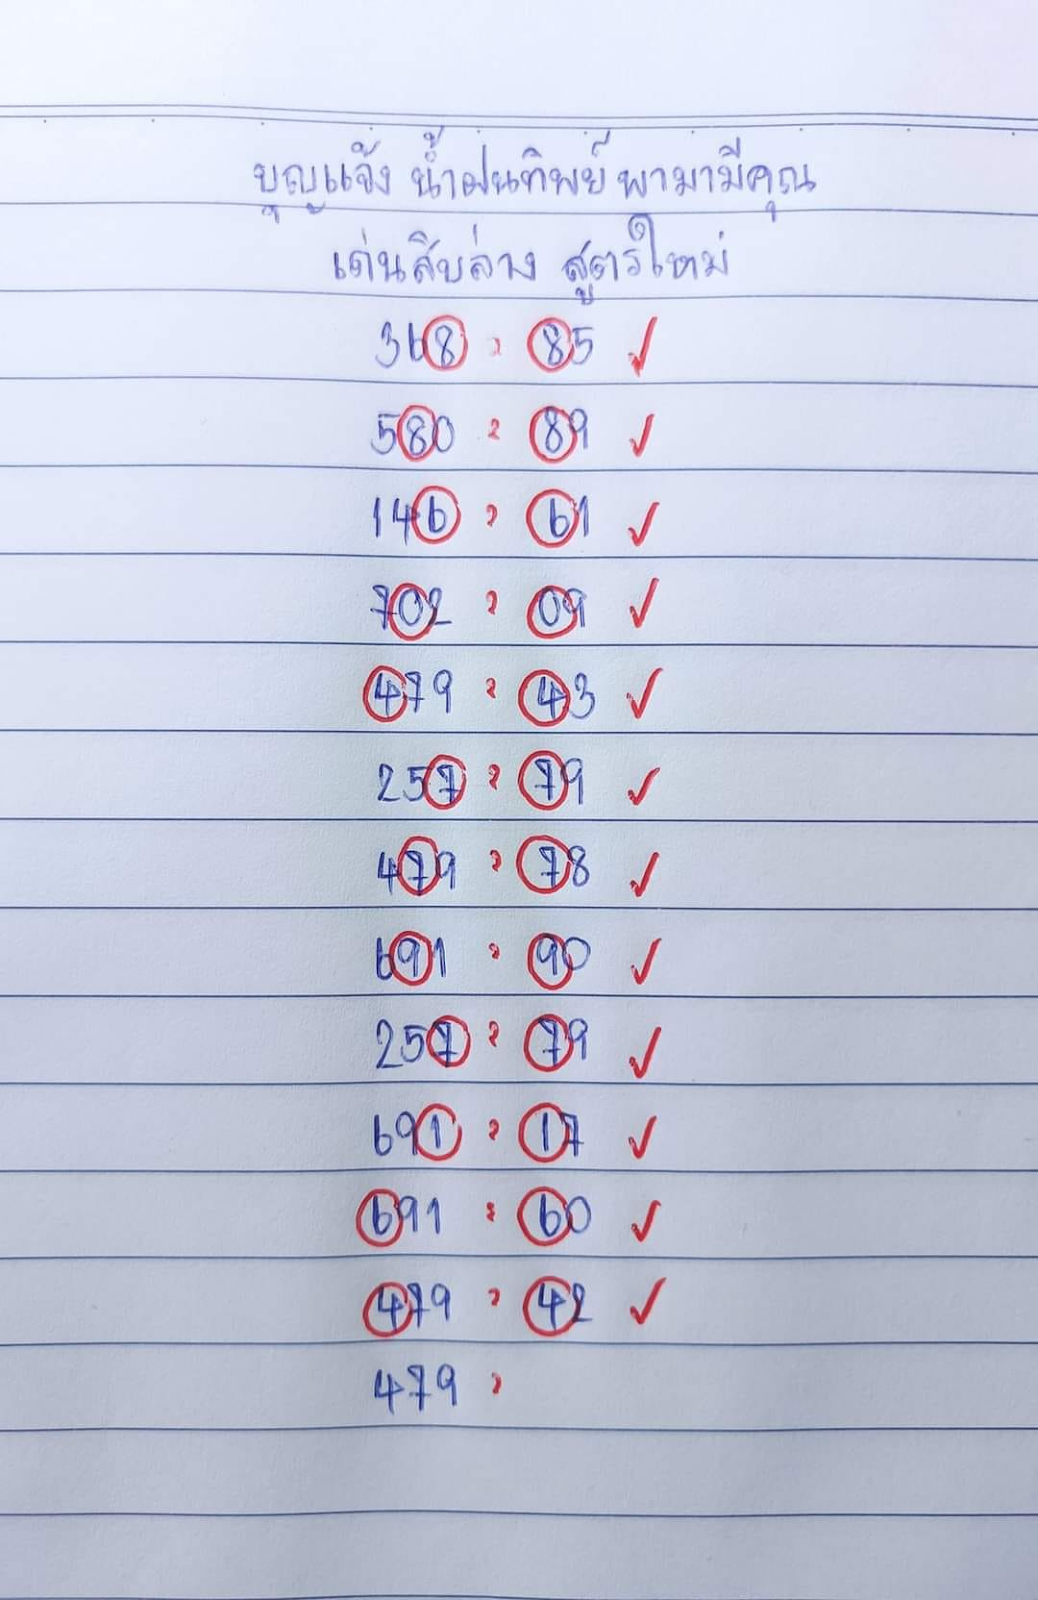 บุญแจ้ง น้ำฝนทิพย์ พามามีคุณ
เด่นสิบล่าง สูตรใหม่
368 , 85 ✓
580 , 89 ✓
146 , 61 ✓
702 , 09 ✓
479 , 43 ✓
257 , 79 ✓
479 , 78 ✓
691 , 90 ✓
257 , 79 ✓
691 , 17 ✓
691 , 60 ✓
479 , 42 ✓
479 ,